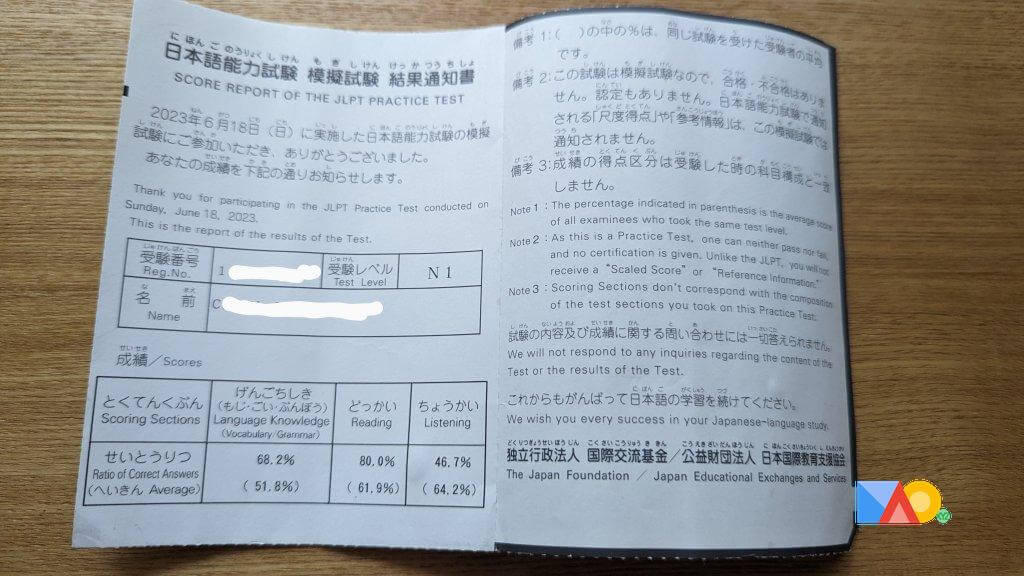 にほんごのうりょくしけん もぎしけん けっかつうちしょ
日本語能力試験 模擬試験 結果通知書
SCORE REPORT OF THE JLPT PRACTICE TEST
2023年6月18日（日）に実施した日本語能力試験の模擬
試験にご参加いただき、ありがとうございました。
あなたの成績を下記の通りお知らせします。
Thank you for participating in the JLPT Practice Test conducted on
Sunday, June 18, 2023.
This is the report of the results of the Test.
じゅけんばんごう
受験番号
Reg.No.
1
じゅけん
受験レベル
Test Level
N1
なまえ
名 前
Name
C
せいせき
成績／Scores
とくてんくぶん
Scoring Sections
げんごちしき
(もじ・ごい・ぶんぽう)
Language Knowledge
(Vocabulary/Grammar)
どっかい
Reading
ちょうかい
Listening
せいとうりつ
Ratio of Correct Answers
(へいきん Average)
68.2%
( 51.8%)
80.0%
( 61.9%)
46.7%
( 64.2%)
備考 1：( )の中の%は、同じ試験を受けた受験者の平均
です。
備考 2：この試験は模擬試験なので、合格・不合格はありま
せん。認定もありません。日本語能力試験で通知
される「尺度得点」や「参考情報」は、この模擬試験では
通知されません。
備考 3：成績の得点区分は受験した時の科目構成と一致
しません。
Note 1 : The percentage indicated in parenthesis is the average score
of all examinees who took the same test level.
Note 2 : As this is a Practice Test, one can neither pass nor fail,
and no certification is given. Unlike the JLPT, you will not
receive a “Scaled Score” or “Reference Information.”
Note 3 : Scoring Sections don't correspond with the composition
of the test sections you took on this Practice Test.
試験の内容及び成績に関する問い合わせには一切答えられません。
We will not respond to any inquiries regarding the content of the
Test or the results of the Test.
これからもがんばって日本語の学習を続けてください。
We wish you every success in your Japanese-language study.
独立行政法人 国際交流基金／公益財団法人 日本国際教育支援協会
The Japan Foundation / Japan Educational Exchanges and Services